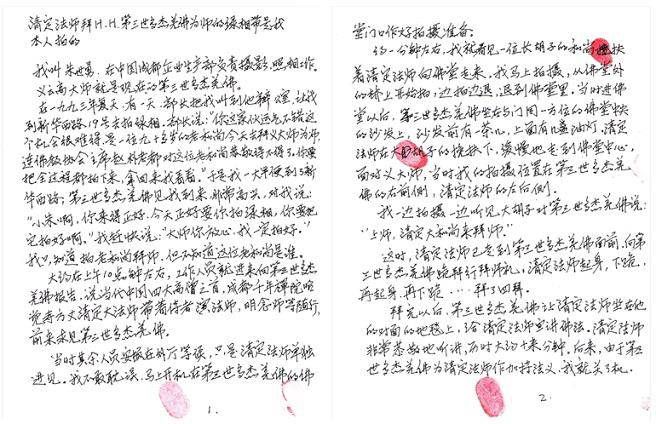 清定法师拜H.H.第三世多杰羌佛为师的录相带是我
本人拍的
我叫朱世勇，在中国成都企业生产部负责摄影、照相工作。
义云高大师就是现在的第三世多杰羌佛。
在一九九三年夏天，有一天，部长把我叫到他办公室，让我
到新华西路19号去拍录相，部长说：“你这家伙运气不错，这
个机会很难得，是一位九十多岁的老和尚今天去拜义大师为师，
连佛教协会主席赵朴老都对这位老和尚恭敬得不得了，你要
把全过程都拍下来，拿回来我看看。”于是我一大早便到了新
华西路，第三世多杰羌佛见我到来，非常高兴，对我说：
“小朱啊，你来得正好，今天正好要你拍录相，你要把
它拍好啊。”我赶快说：“大师你放心，我一定拍好。”
我只知道拍老和尚拜师，但不知道这位老和尚是谁。
大约在上午10点钟左右，工作人员就进来向第三世多杰
羌佛报告，说当代中国四大高僧之首，成都千年古刹昭觉
寺方丈清定大法师带着侍者演法师，明念师等随行，
前来求见第三世多杰羌佛。
当时其余人员安排在外厅等候，只是清定法师单独
进见。我不敢耽误，马上开机在第三世多杰羌佛的佛
1.
堂门口作好拍摄准备。
约一分钟左右，我就看见一位长胡子的和尚搀扶
着清定法师向佛堂走来，我马上拍摄，从佛堂外
的坝上开始拍，边拍边退，退到佛堂里，当时进佛
堂以后，第三世多杰羌佛坐在与门同一方位的佛堂中央
的沙发上，沙发前有一茶几，上面有几盏油灯，清定
法师在大胡子的搀扶下，缓慢地走到佛堂中心，
面对义大师，当时我的拍摄位置在第三世多杰羌
佛的右前侧，清定法师的左后侧。
我一边拍摄一边听见大胡子对第三世多杰羌佛说：
“上师，清定大和尚来拜师。”
这时，清定法师已走到第三世多杰羌佛面前，向第
三世多杰羌佛跪拜行拜师礼，清定法师起身，下跪，
再起身，再下跪……拜了四拜。
拜完以后，第三世多杰羌佛让清定法师坐在他
的对面的地毯上，给清定法师宣讲佛法。清定法师
非常恭敬地听讲，历时大约十来分钟。后来，由于第三
世多杰羌佛为清定法师作加持法义，我就关了机。
2.